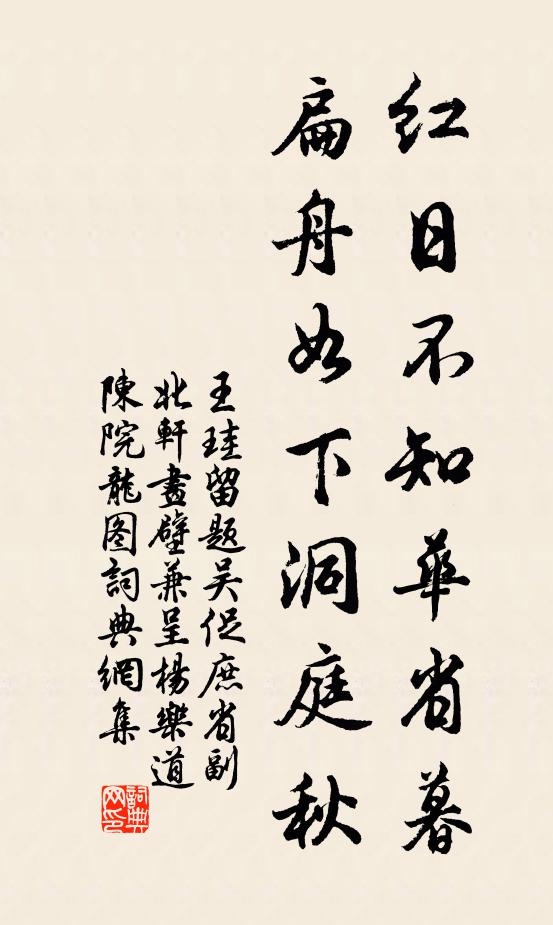 红日不知华省暮
扁舟如下洞庭秋
王珪留题吴促庶省副
北軒畫壁兼呈楊樂道
陳院龍图詞典網集
詞典网印